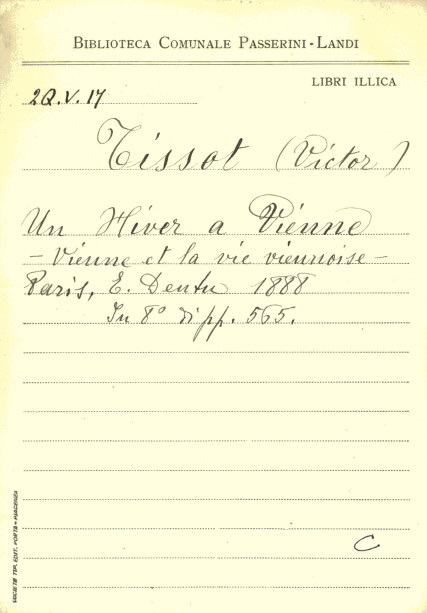 BIBLIOTECA COMUNALE PASSERINI-LANDI
LIBRI ILLICA
2Q.V.17
Tissot (Victor)
Un Hiver a Vienne
- Vienne et la vie viennoise -
Paris, E. Dentu 1888
In 8° di pp. 565.
C
SOCIETÀ TIP. EDIT. PORTA - PIACENZA